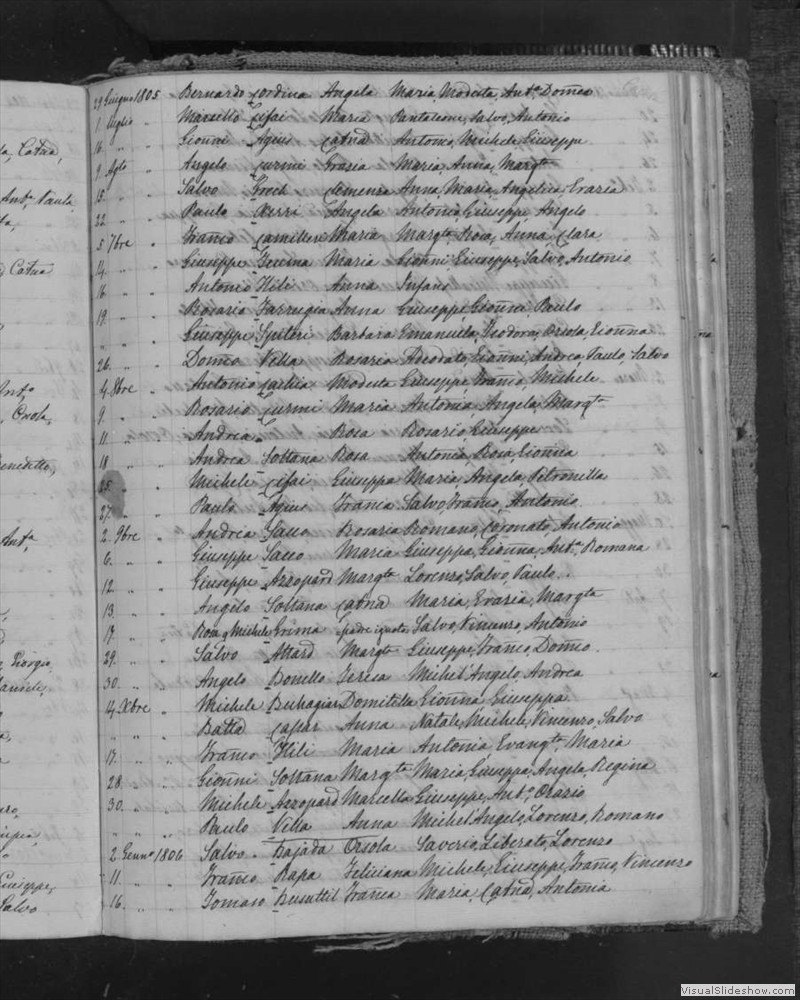 a, Catna,
Ant.ª Paula
ta,
d Catna
Ant.º
, Orsola,
Benedetto,
Ant.ª
Giorgio
Daniele,
Giuseppe,
Salvo
29 Giugno 1805 Bernardo Cordina Angela Maria, Modesta, Ant.ª Domca
1 Luglio " Marcello Cifai Maria Pantaleone, Salvo, Antonio
16 " " Gionni Agius Catna Antonio, Michele, Giuseppe
9 Agto " Angelo Curmi Grazia Maria, Anna, Margta
15 " " Salvo Grech Clemenza Anna, Maria, Angelica, Grazia
22 " " Paulo Xerri Angela Antonio, Giuseppe, Angelo
5 7bre " Franco Camilleri Maria Margta Rosa, Anna, Clara
14 " " Giuseppe Maria Gionni Giuseppe, Salvo, Antonio
16 " " Antonio Hili Anna
19 " " Rosario Farrugia Anna Giuseppe, Gionni, Paulo
" " " Giuseppe Spiteri Barbara Emanuela, Teodora, Orsola, Gionna
26 " " Domco Vella Rosaria Deodato, Gionni, Andrea, Paulo, Salvo
4 8bre " Antonio Modesta Giuseppe, Franco, Michele
9 " " Rosario Curmi Maria Antonia, Angela, Margta
11 " " Andrea " Rosa Rosario, Giuseppe
18 " " Andrea Soltana Rosa Antonia, Rosa, Gionna
25 " " Michele Cifai Giuseppa Maria, Angela, Petronilla
27 " " Paulo Agius Franca Salvo, Franco, Antonio
2 9bre " Andrea Sacco Rosaria Romano, Coronato, Antonio
6 " " Giuseppe Sacco Maria Giuseppa, Gionna, Ant.ª Romana
12 " " Giuseppe Azzopard Margta Lorenzo, Salvo, Paulo
13 " " Angelo Soltana Catna Maria, Grazia, Margta
17 " " Rosa q Michele Grima padre ignoto Salvo, Vincenzo, Antonio
29 " " Salvo Attard Margta Giuseppe, Franco, Domco
30 " " Angelo Bonello Teresa Michel'Angelo, Andrea
4 Xbre " Michele Buhagiar Domitilla Gionna, Giuseppa
" " " Batta Caspar Anna Natale, Michele, Vincenzo, Salvo
17 " " Franco Hili Maria Antonia Evangta, Maria
28 " " Gionni Soltana Margta Maria, Giuseppa, Angela, Regina
30 " " Michele Azzopard Marcella Giuseppe, Ant.º Orazio
" " " Paulo Vella Anna Michel'Angelo, Lorenzo, Romano
2 Genno 1806 Salvo Bajada Orsola Saverio, Liberato, Lorenzo
11 " " Franco Rapa Feliciana Michele, Giuseppe, Franco, Vincenzo
16 " " Tomaso Busuttil Franca Maria, Catna, Antonia
VisualSlideshow.com